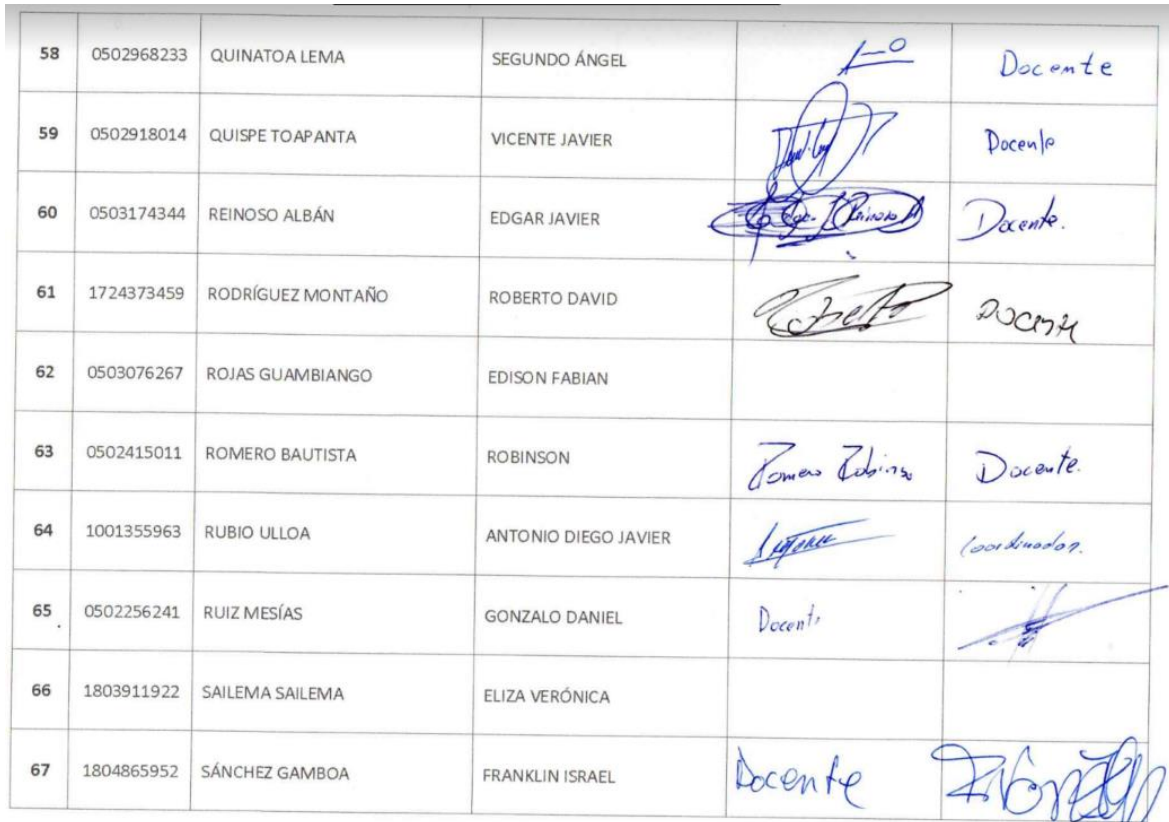 58 0502968233 QUINATOA LEMA SEGUNDO ÁNGEL Docente
59 0502918014 QUISPE TOAPANTA VICENTE JAVIER Docente
60 0503174344 REINOSO ALBÁN EDGAR JAVIER Reinoso Docente.
61 1724373459 RODRÍGUEZ MONTAÑO ROBERTO DAVID Roberto Docente
62 0503076267 ROJAS GUAMBIANGO EDISON FABIAN
63 0502415011 ROMERO BAUTISTA ROBINSON Romero Robinso Docente.
64 1001355963 RUBIO ULLOA ANTONIO DIEGO JAVIER Coordinador.
65 0502256241 RUIZ MESÍAS GONZALO DANIEL Docent
66 1803911922 SAILEMA SAILEMA ELIZA VERÓNICA
67 1804865952 SÁNCHEZ GAMBOA FRANKLIN ISRAEL Docente